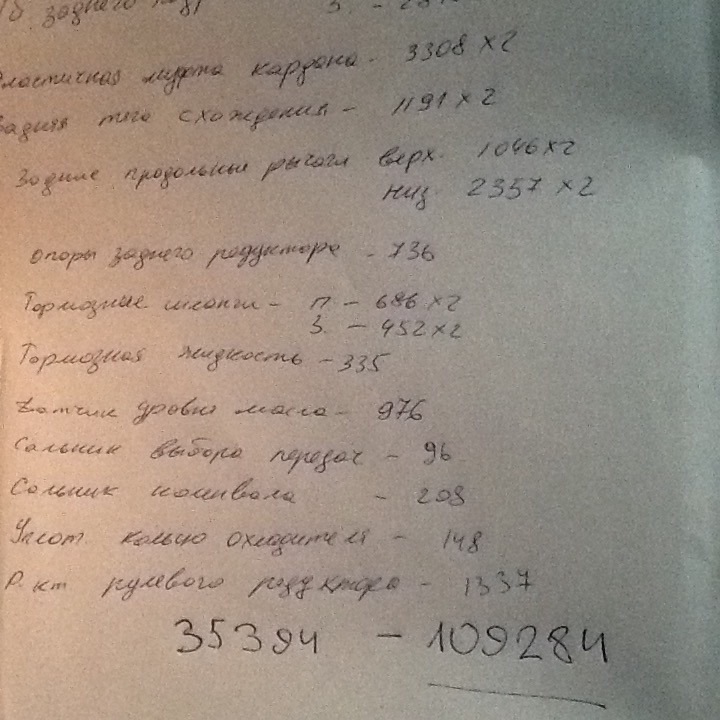 заднего
3. - 
эластичная муфта кардана - 3308 x 2
Задняя тяга схождения - 1191 x 2
Задние продольные рычаги верх. 1046 x 2
низ 2357 x 2
опоры заднего редуктора - 736
Тормозные шланги - п. - 686 x 2
З. - 452 x 2
Тормозная жидкость - 335
Датчик уровня масла - 976
Сальник выбора передач - 96
Сальник коленвала - 208
Уплот. кольцо охладителя - 148
Р. кт рулевого редуктора - 1337
35394 - 109284